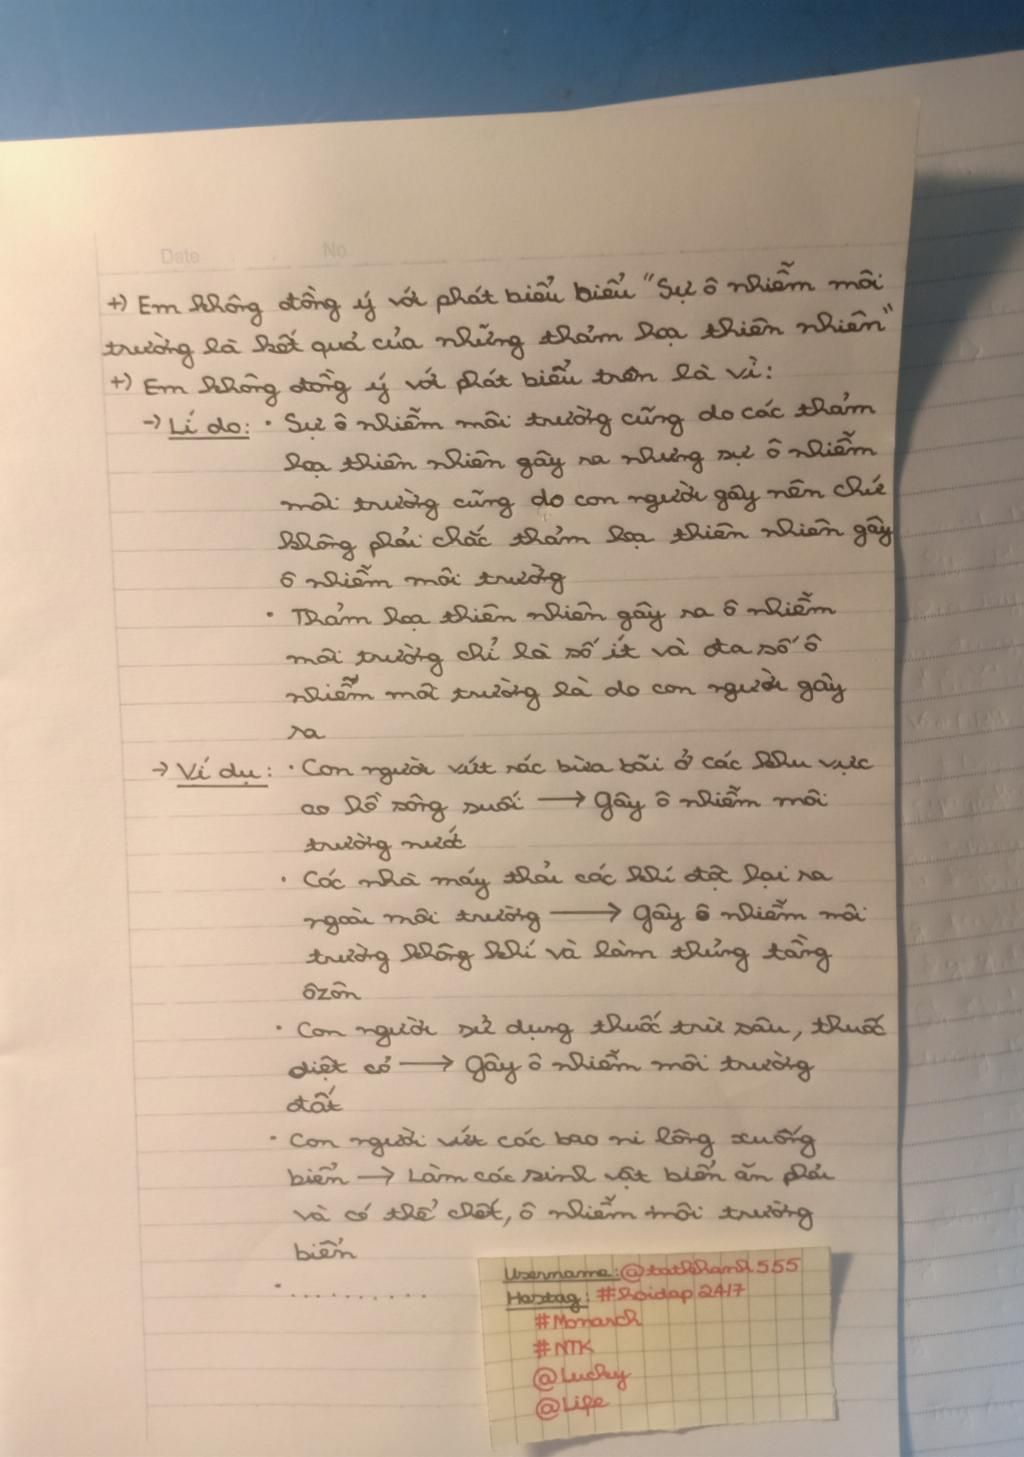 Date No
+) Em không đồng ý với phát biểu biểu "Sự ô nhiễm môi
trường là kết quả của những thảm họa thiên nhiên"
+) Em không đồng ý với phát biểu trên là vì:
→ Lí do: • Sự ô nhiễm môi trường cũng do các thảm
họa thiên nhiên gây ra nhưng sự ô nhiễm
môi trường cũng do con người gây nên chứ
không phải chắc thảm họa thiên nhiên gây
ô nhiễm môi trường
• Thảm họa thiên nhiên gây ra ô nhiễm
môi trường chỉ là số ít và đa số ô
nhiễm môi trường là do con người gây
ra
→ Ví dụ: • Con người vứt rác bừa bãi ở các khu vực
ao hồ sông suối → gây ô nhiễm môi
trường nước
• Các nhà máy thải các khí độc hại ra
ngoài môi trường → gây ô nhiễm môi
trường không khí và làm thủng tầng
ôzôn
• Con người sử dụng thuốc trừ sâu, thuốc
diệt cỏ → gây ô nhiễm môi trường
đất
• Con người vứt các bao ni lông xuống
biển → Làm các sinh vật biển ăn phải
và có thể chết, ô nhiễm môi trường
biển
• ..........
Username: @tathkhanh555
Hastag: #hoidap247
#Monarch
#NTK
@Lucky
@Life